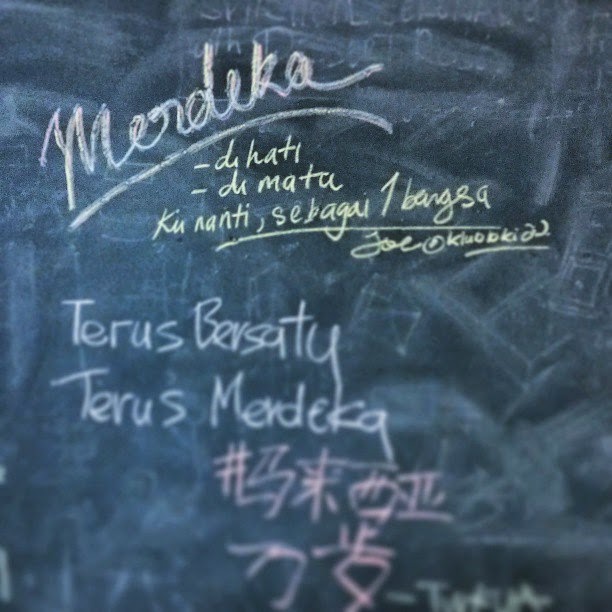 Merdeka
- di hati
- di mata
Ku nanti, sebagai 1 bangsa
Terus Bersatu
Terus Merdeka
#马来西亚
万岁